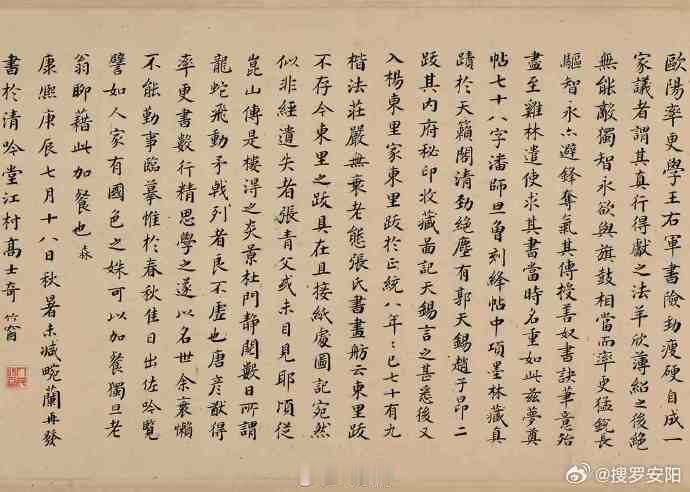 歐陽率更學王右軍書險勁瘦硬自成一
家議者謂其真行得獻之法羊欣薄紹之後絕
無能敵獨智永欲與旗鼓相當而率更猛銳長
驅智永亦避鋒奪氣其傳授善奴書訣筆意殆
盡至雞林遣使求其書當時名重如此茲夢奠
帖七十八字潘師旦曾刻絳帖中項墨林藏真
蹟於天籟閣清勁絕塵有郭天錫趙子昂二
跋其内府秘印收藏啚記天錫言之甚悉後又
入楊東里家東里跋於正統八年年已七十有九
楷法莊嚴無衰老態張氏書畫舫云東里跋
不存今東里之跋具在且接紙處圖記宛然
似非經遺失者張青父或未目見耶頃從
崑山傳是樓得之炎景杜門静閱數日所謂
龍蛇飛動矛戟列者良不虛也唐彦猷得
率更書數行精思學之遂以名世余衰懶
不能勤事臨摹惟於春秋佳日出佐吟覽
譬如人家有國色之姝可以加餐獨旦老
翁聊藉此加餐也
康熙庚辰七月十八日秋暑未減畹蘭再發
書於清吟堂江村髙士奇
@搜罗安阳